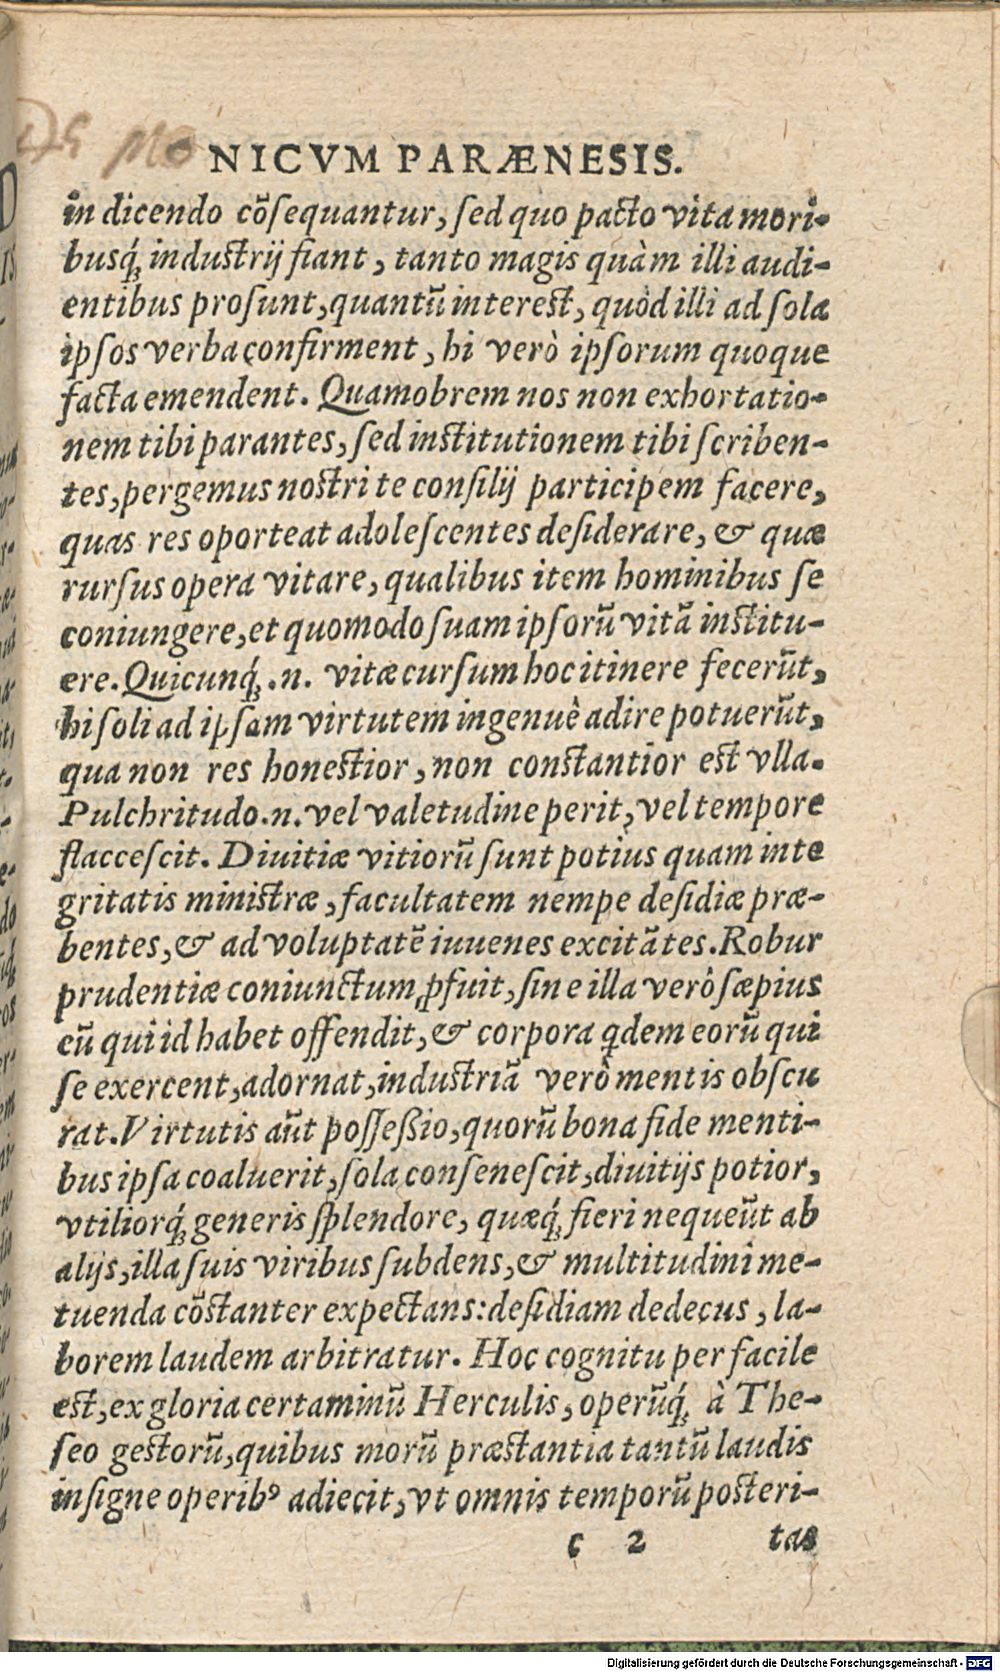 DE MO
NICVM PARÆNESIS.
in dicendo cõſequantur, ſed quo pacto vita mori-
busq́ꝫ induſtrij fiant, tanto magis quàm illi audi-
entibus proſunt, quantũ intereſt, quòd illi ad ſola
ipſos verba confirment, hi verò ipſorum quoque
facta emendent. Quamobrem nos non exhortatio-
nem tibi parantes, ſed inſtitutionem tibi ſcriben-
tes, pergemus noſtri te conſilij participem facere,
quas res oporteat adoleſcentes deſiderare, & quæ
rurſus opera vitare, qualibus item hominibus ſe
coniungere, et quomodo ſuam ipſorũ vitã inſtitu-
ere. Quicunq́ꝫ .n. vitæ curſum hoc itinere fecerũt,
hi ſoli ad ipſam virtutem ingenuè adire potuerũt,
qua non res honeſtior, non conſtantior eſt vlla.
Pulchritudo .n. vel valetudine perit, vel tempore
flacceſcit. Diuitiæ vitiorũ ſunt potius quam inte
gritatis miniſtræ, facultatem nempe deſidiæ præ-
bentes, & ad voluptatẽ iuuenes excitãtes. Robur
prudentiæ coniunctum ꝓfuit, ſine illa verò ſæpius
eũ qui id habet offendit, & corpora qͥdem eorũ qui
ſe exercent, adornat, induſtriã verò mentis obſcu
rat. Virtutis aũt poſſeßio, quorũ bona fide menti-
bus ipſa coaluerit, ſola conſeneſcit, diuitijs potior,
vtiliorq́ꝫ generis ſplendore, quæq́ꝫ fieri nequeũt ab
alijs, illa ſuis viribus ſubdens, & multitudini me-
tuenda cõſtanter expectans: deſidiam dedecus, la-
borem laudem arbitratur. Hoc cognitu per facile
eſt, ex gloria certaminũ Herculis, operũq́ꝫ à The-
ſeo geſtorũ, quibus morũ præſtantia tantũ laudis
inſigne operibꝰ adiecit, vt omnis temporũ poſteri-
c 2 tas
Digitalisierung gefördert durch die Deutsche Forschungsgemeinschaft - DFG